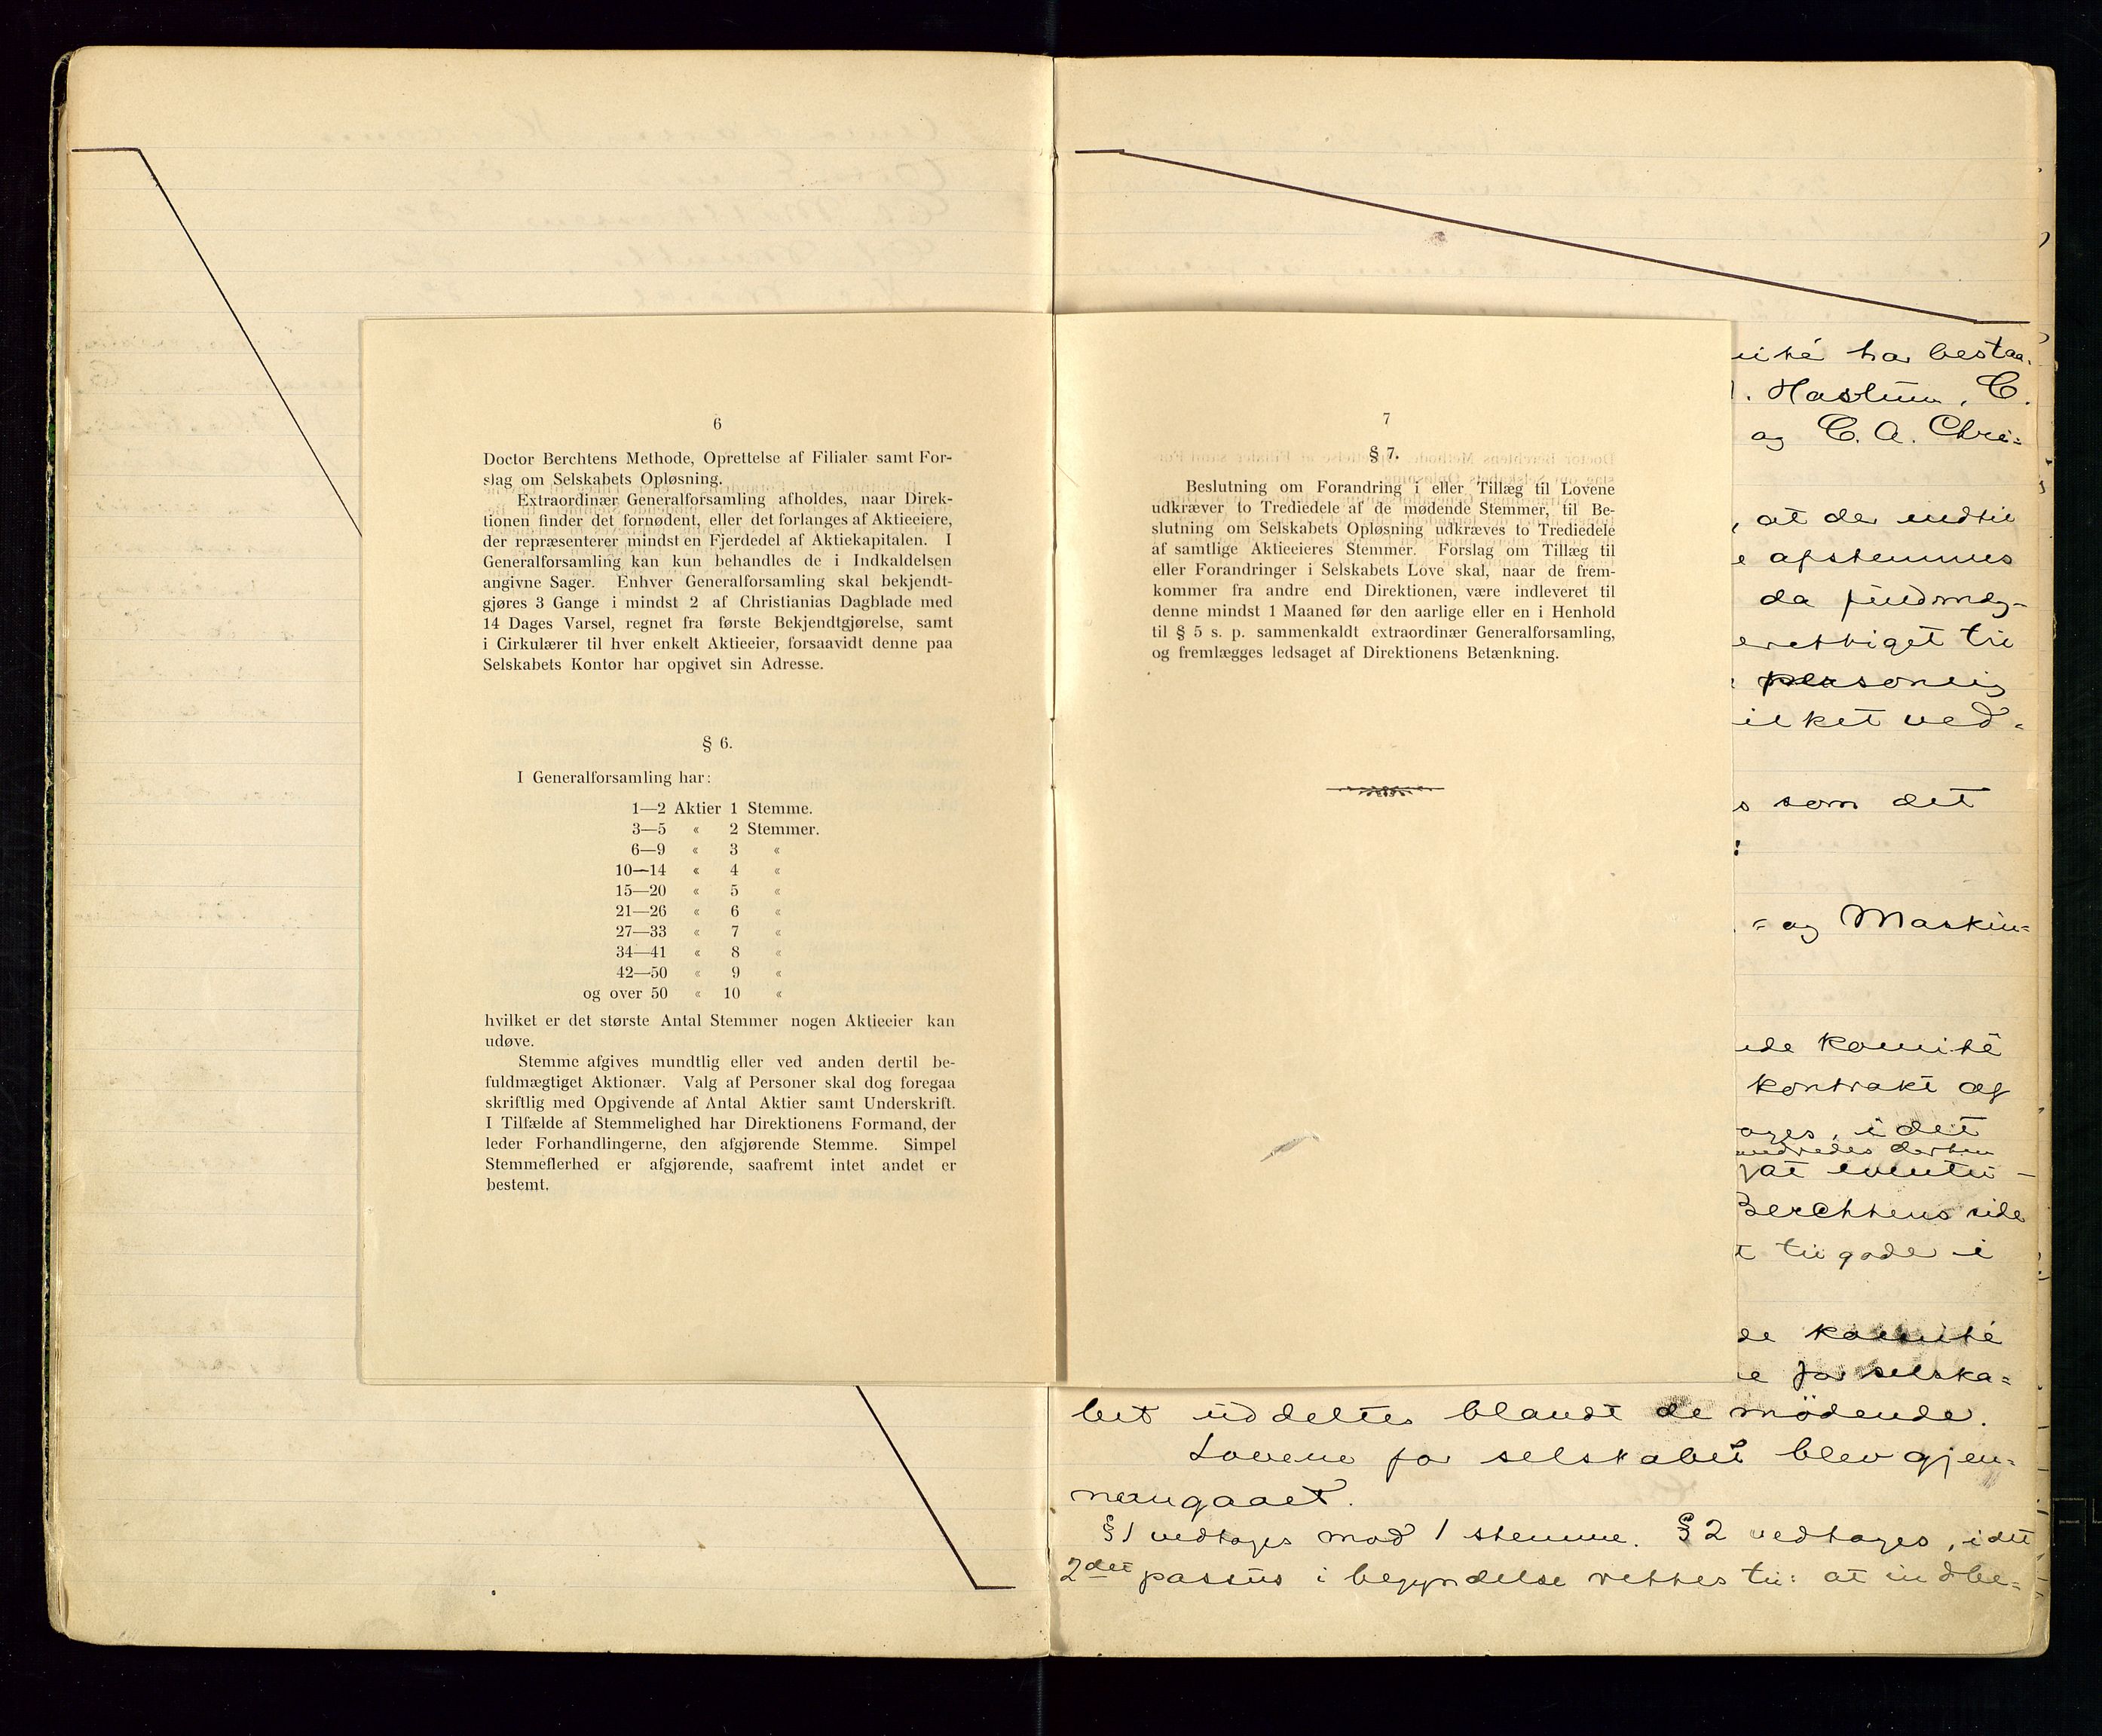 6
Doctor Berchtens Methode, Oprettelse af Filialer samt For-
slag om Selskabets Opløsning.
Extraordinær Generalforsamling afholdes, naar Direk-
tionen finder det fornødent, eller det forlanges af Aktieeiere,
der repræsenterer mindst en Fjerdedel af Aktiekapitalen. I
Generalforsamling kan kun behandles de i Indkaldelsen
angivne Sager. Enhver Generalforsamling skal bekjendt-
gjøres 3 Gange i mindst 2 af Christianias Dagblade med
14 Dages Varsel, regnet fra første Bekjendtgjørelse, samt
i Cirkulærer til hver enkelt Aktieeier, forsaavidt denne paa
Selskabets Kontor har opgivet sin Adresse.
§ 6.
I Generalforsamling har:
1—2 Aktier 1 Stemme.
3—5 « 2 Stemmer.
6—9 « 3 «
10—14 « 4 «
15—20 « 5 «
21—26 « 6 «
27—33 « 7 «
34—41 « 8 «
42—50 « 9 «
og over 50 « 10 «
hvilket er det største Antal Stemmer nogen Aktieeier kan
udøve.
Stemme afgives mundtlig eller ved anden dertil be-
fuldmægtiget Aktionær. Valg af Personer skal dog foregaa
skriftlig med Opgivende af Antal Aktier samt Underskrift.
I Tilfælde af Stemmelighed har Direktionens Formand, der
leder Forhandlingerne, den afgjørende Stemme. Simpel
Stemmeflerhed er afgjørende, saafremt intet andet er
bestemt.
7
§ 7.
Beslutning om Forandring i eller Tillæg til Lovene
udkræver to Trediedele af de mødende Stemmer, til Be-
slutning om Selskabets Opløsning udkræves to Trediedele
af samtlige Aktieeieres Stemmer. Forslag om Tillæg til
eller Forandringer i Selskabets Love skal, naar de frem-
kommer fra andre end Direktionen, være indleveret til
denne mindst 1 Maaned før den aarlige eller en i Henhold
til § 5 s. p. sammenkaldt extraordinær Generalforsamling,
og fremlægges ledsaget af Direktionens Betænkning.
ité har bestaa-
. Haslum, C.
og C. A. Chri-
, at der indtil
afstemmes
da fuldmæg-
erettiget til
personlig
ilket ved-
s som det
:
- og Maskin-
nde komité
kontrakt og
ages, idet
at eventu-
Berchtens side
t tilgode i
de komité
e for selska-
bet uddeltes blandt de mødende.
Lovene for selskabet blev gjen-
nemgaaet.
§ 1 vedtoges mod 1 stemme. § 2 vedtages, idet
2det passus i begyndelse rettes til: at indbe-